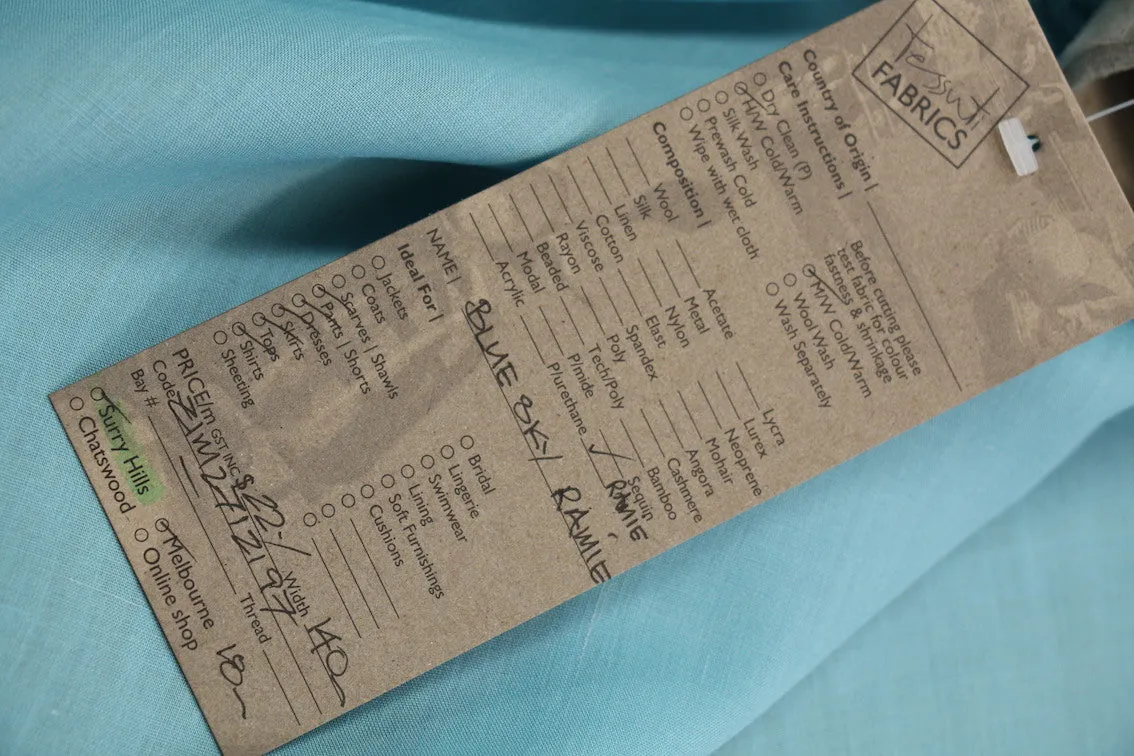 tessuti
FABRICS
Country of Origin |
Care Instructions |
Dry Clean (P)
H/W Cold/Warm
Silk Wash
Prewash Cold
Wipe with wet cloth
Before cutting please
test fabric for colour
fastness & shrinkage
M/W Cold/Warm
Wool Wash
Wash Separately
Composition |
Wool
Silk
Linen
Cotton
Viscose
Rayon
Beaded
Modal
Acrylic
Acetate
Metal
Nylon
Elast
Spandex
Poly
Tech/Poly
P/mide
P/urethane
Lycra
Lurex
Neoprene
Mohair
Angora
Cashmere
Bamboo
Sequin
RAMIE
NAME | BLUE SKY RAMIE
Ideal For |
Jackets
Coats
Scarves | Shawls
Pants | Shorts
Dresses
Skirts
Tops
Shirts
Sheeting
Bridal
Lingerie
Swimwear
Lining
Soft Furnishings
Cushions
PRICE/m GST INC $ 22-/ Width 140
Code ZIM2712197
Bay # Thread
Surry Hills
Chatswood
Melbourne
Online shop
18m